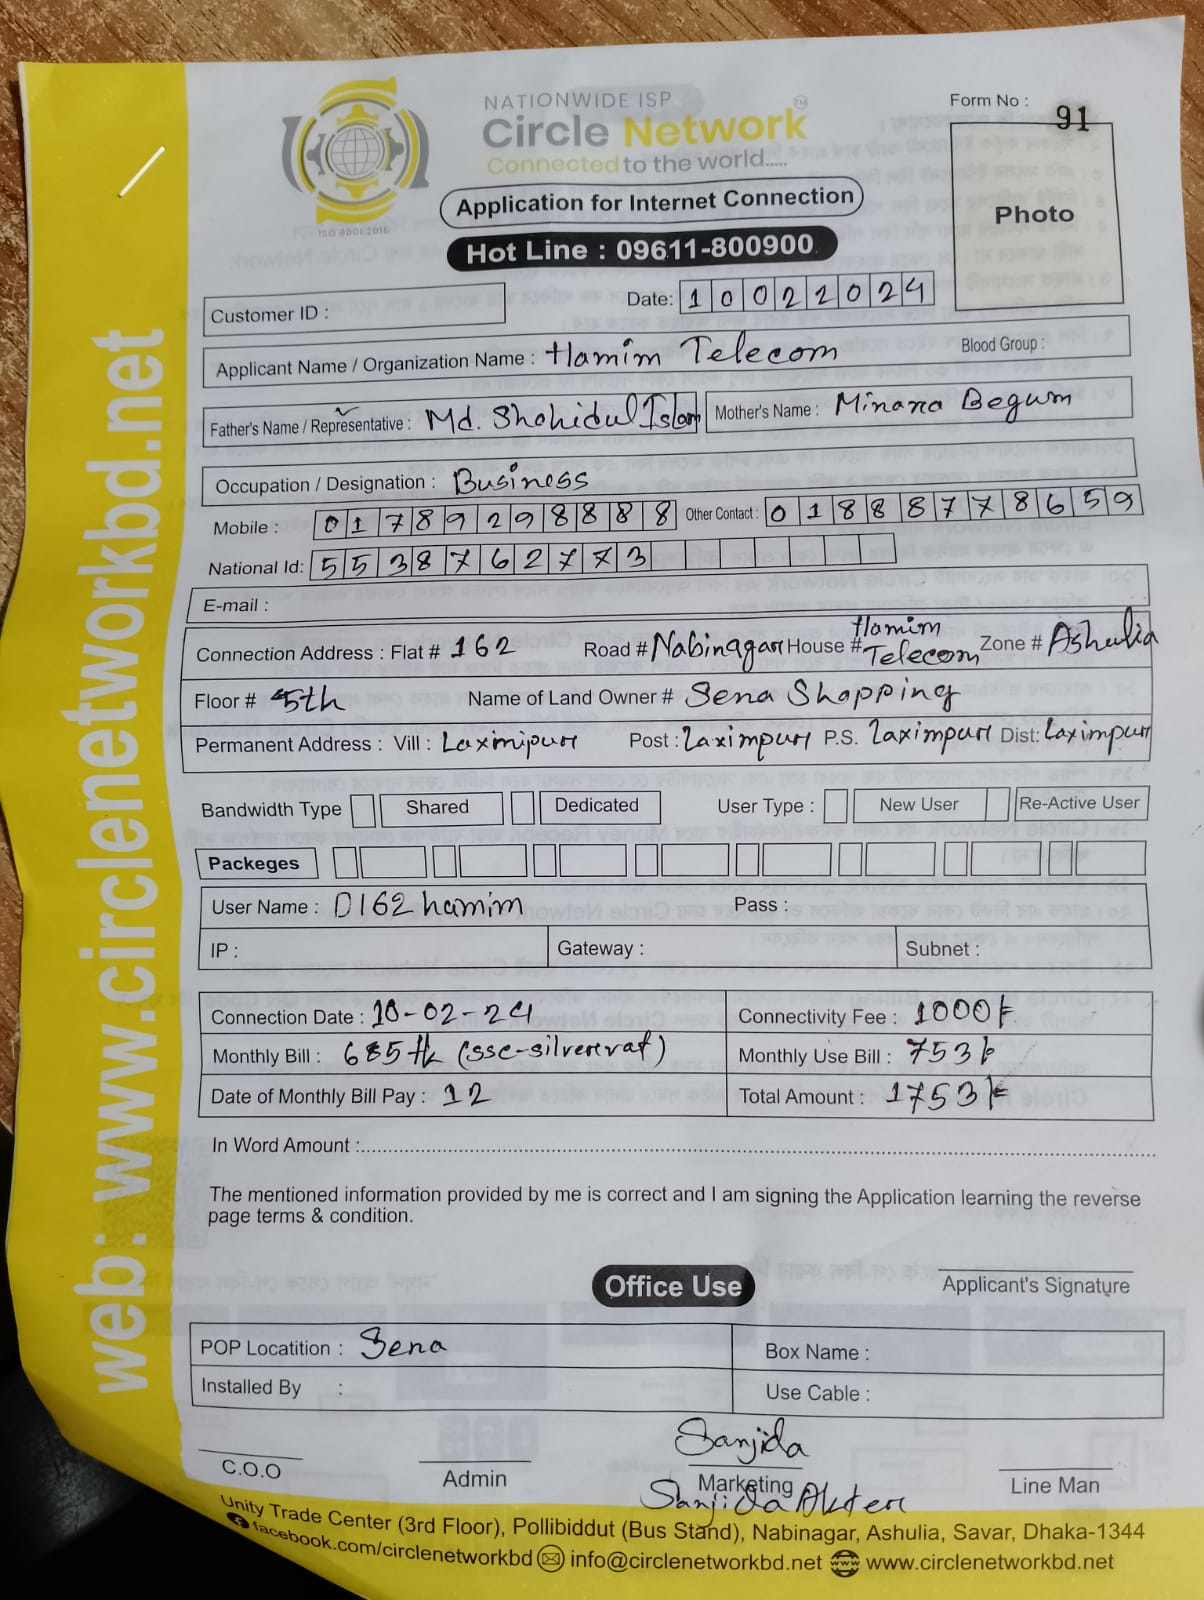 NATIONWIDE ISP
Circle Network TM
Connected to the world.....
ISO 9001:2015
Form No : 91
Photo
Application for Internet Connection
Hot Line : 09611-800900
Customer ID :
Date: 10022024
Applicant Name / Organization Name : Hamim Telecom Blood Group :
Father's Name / Representative : Md. Shohidul Islam Mother's Name : Minara Begum
Occupation / Designation : Business
Mobile : 01789298888 Other Contact : 01888778659
National Id: 5538762773
E-mail :
Connection Address : Flat # 162 Road # Nabinagar House # Hamim Telecom Zone # Ashulia
Floor # 5th Name of Land Owner # Sena Shopping
Permanent Address : Vill : Laxmipur Post : Laximpur P.S. Laximpur Dist: Laximpur
Bandwidth Type Shared Dedicated User Type : New User Re-Active User
Packeges
User Name : D162hamim Pass :
IP : Gateway : Subnet :
Connection Date : 10-02-24 Connectivity Fee : 1000tk
Monthly Bill : 685 tk Monthly Use Bill : 753tk
Date of Monthly Bill Pay : 12 Total Amount : 1753tk
In Word Amount :
The mentioned information provided by me is correct and I am signing the Application learning the reverse
page terms & condition.
Office Use
Applicant's Signature
POP Locatition : Sena Box Name :
Installed By : Use Cable :
Sanjida
C.O.O Admin Marketing Line Man
Sanjida Akter
Unity Trade Center (3rd Floor), Pollibiddut (Bus Stand), Nabinagar, Ashulia, Savar, Dhaka-1344
facebook.com/circlenetworkbd info@circlenetworkbd.net www.circlenetworkbd.net
web: www.circlenetworkbd.net